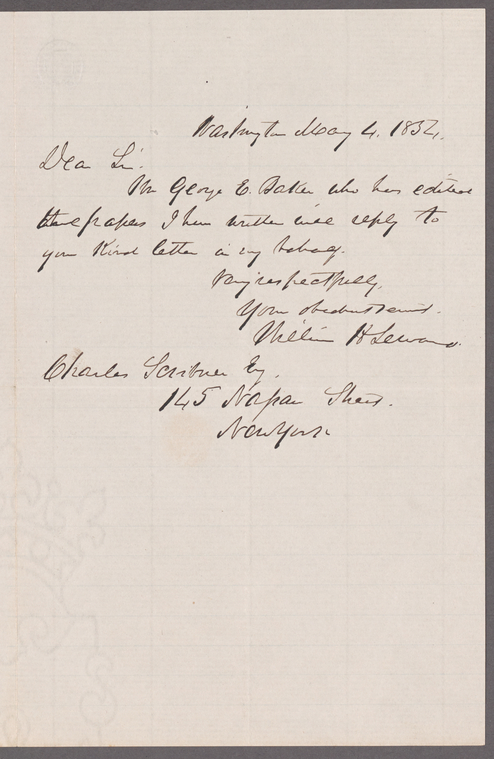 Washington May 4. 1854.
Dear Sir.
Mr George E. Baker who has edited
these papers I have written will reply to
your kind letter in my behalf.
Very respectfully,
Your obedient servant.
William H Seward.
Charles Scribner Esq.
145 Nassau Street.
New York